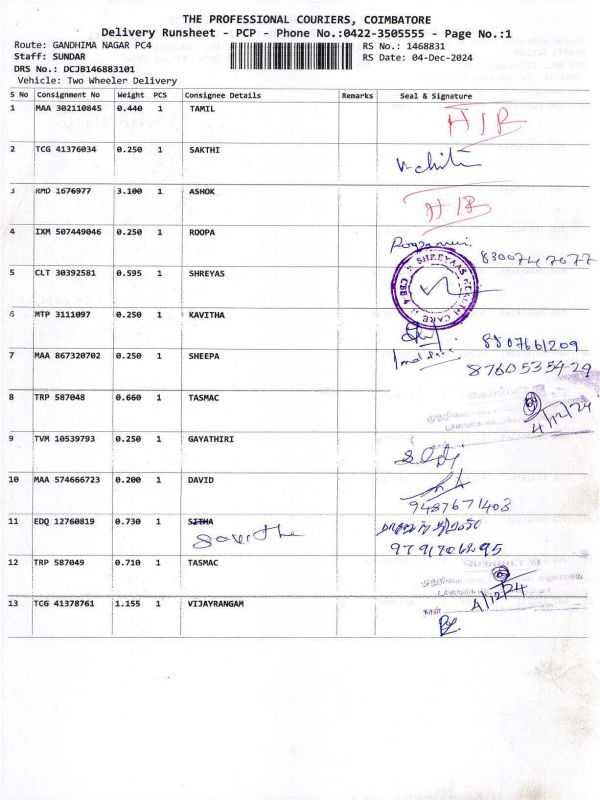 THE PROFESSIONAL COURIERS, COIMBATORE
Delivery Runsheet - PCP - Phone No.:0422-3505555 - Page No.:1
Route: GANDHIMA NAGAR PC4
RS No.: 1468831
Staff: SUNDAR
RS Date: 04-Dec-2024
DRS No.: DCJB146883101
Vehicle: Two Wheeler Delivery
S No Consignment No Weight PCS Consignee Details Remarks Seal & Signature
1 MAA 302110845 0.440 1 TAMIL
2 TCG 41376034 0.250 1 SAKTHI
3 RMD 1676977 3.100 1 ASHOK
4 IXM 507449046 0.250 1 ROOPA
8300747077
5 CLT 30392581 0.595 1 SHREYAS
SHREYAAS HEALTH CARE CBE-4
6 MTP 3111097 0.250 1 KAVITHA
8807661209
7 MAA 867320702 0.250 1 SHEEPA
8760535429
8 TRP 587048 0.660 1 TASMAC
4/12/24
9 TVM 10539793 0.250 1 GAYATHIRI
10 MAA 574666723 0.200 1 DAVID
9487671408
11 EDQ 12760819 0.730 1 SJTHA
Savitha
9791706295
12 TRP 587049 0.710 1 TASMAC
4/12/24
13 TCG 41378761 1.155 1 VIJAYRANGAM